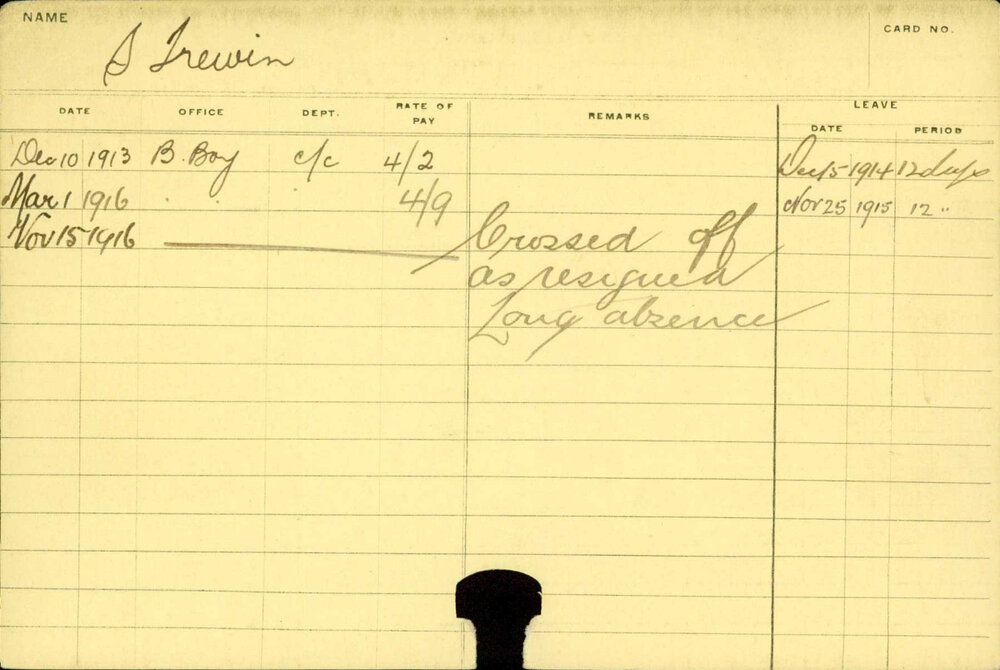 NAME
S Trewin
CARD NO.
DATE OFFICE DEPT. RATE OF PAY REMARKS LEAVE
DATE PERIOD
Dec 10 1913 B. Boy c/c 4/2 Dec 15 1914 12 days
Mar 1 1916 . . . 4/9 Nov 25 1915 12 "
Nov 15 1916 Crossed off
as resigned
Long absence